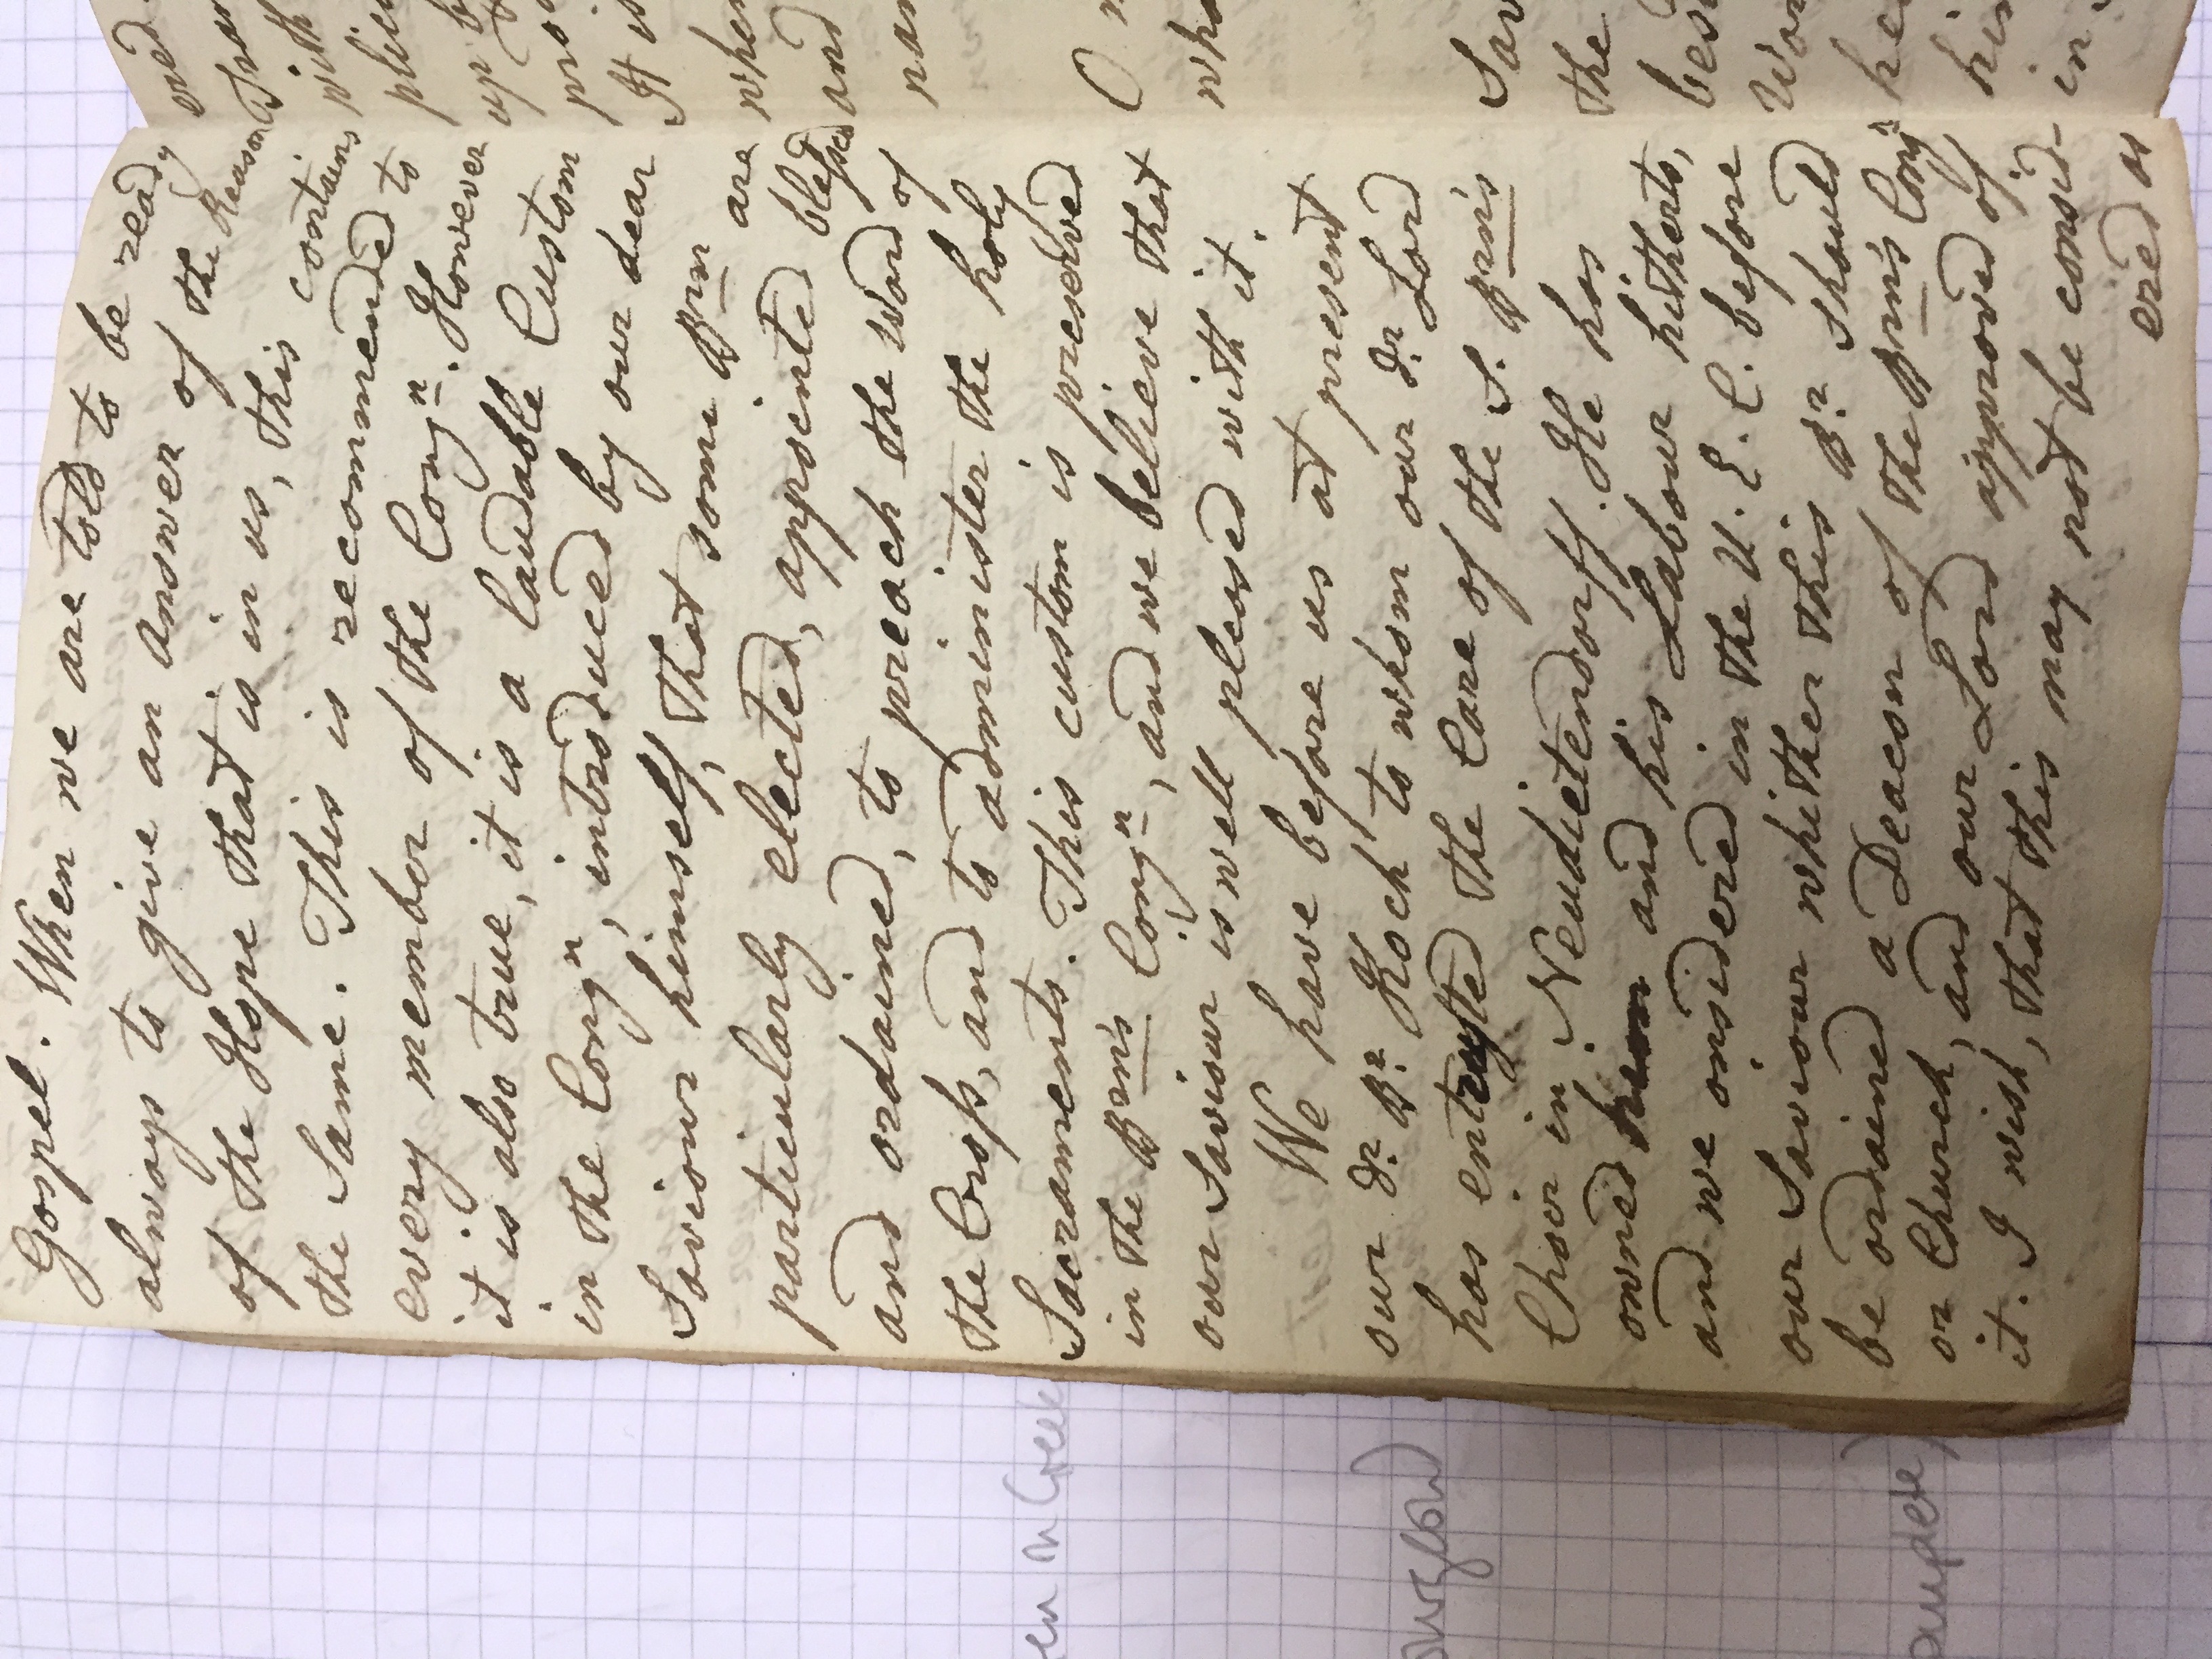 Gospel. When we are told to be ready
always to give an answer of the Reason
of the Hope that is in us, this contains
the Same. This is recommended to
every member of the Congn. However
it is also true, it is a laudable Custom
in the Congn, introduced by our dear
Saviour himself, that some Brn are
particularly elected, appointed blessed
and ordained, to preach the Word of
the Cross, and to administer the holy
Sacraments. This custom is preserved
in the Brn's Congn, and we believe that
our Saviour is well pleased with it.
We have before us at present
our dr. Br. Koch to whom our dr. Lord
has entrusted the Care of the S. Brn's
Choir in Neudietendorff. He has
owned him and his Labour hitherto,
and we onsidered in the U. E. C. before
our Saviour whither this Br. should
be ordained a Deacon of the Brn's Congn
or Church, and our Lord approved of
it. I wish, that this may not be consid-
ered as
ered
with
up
It is
and
O
the
in